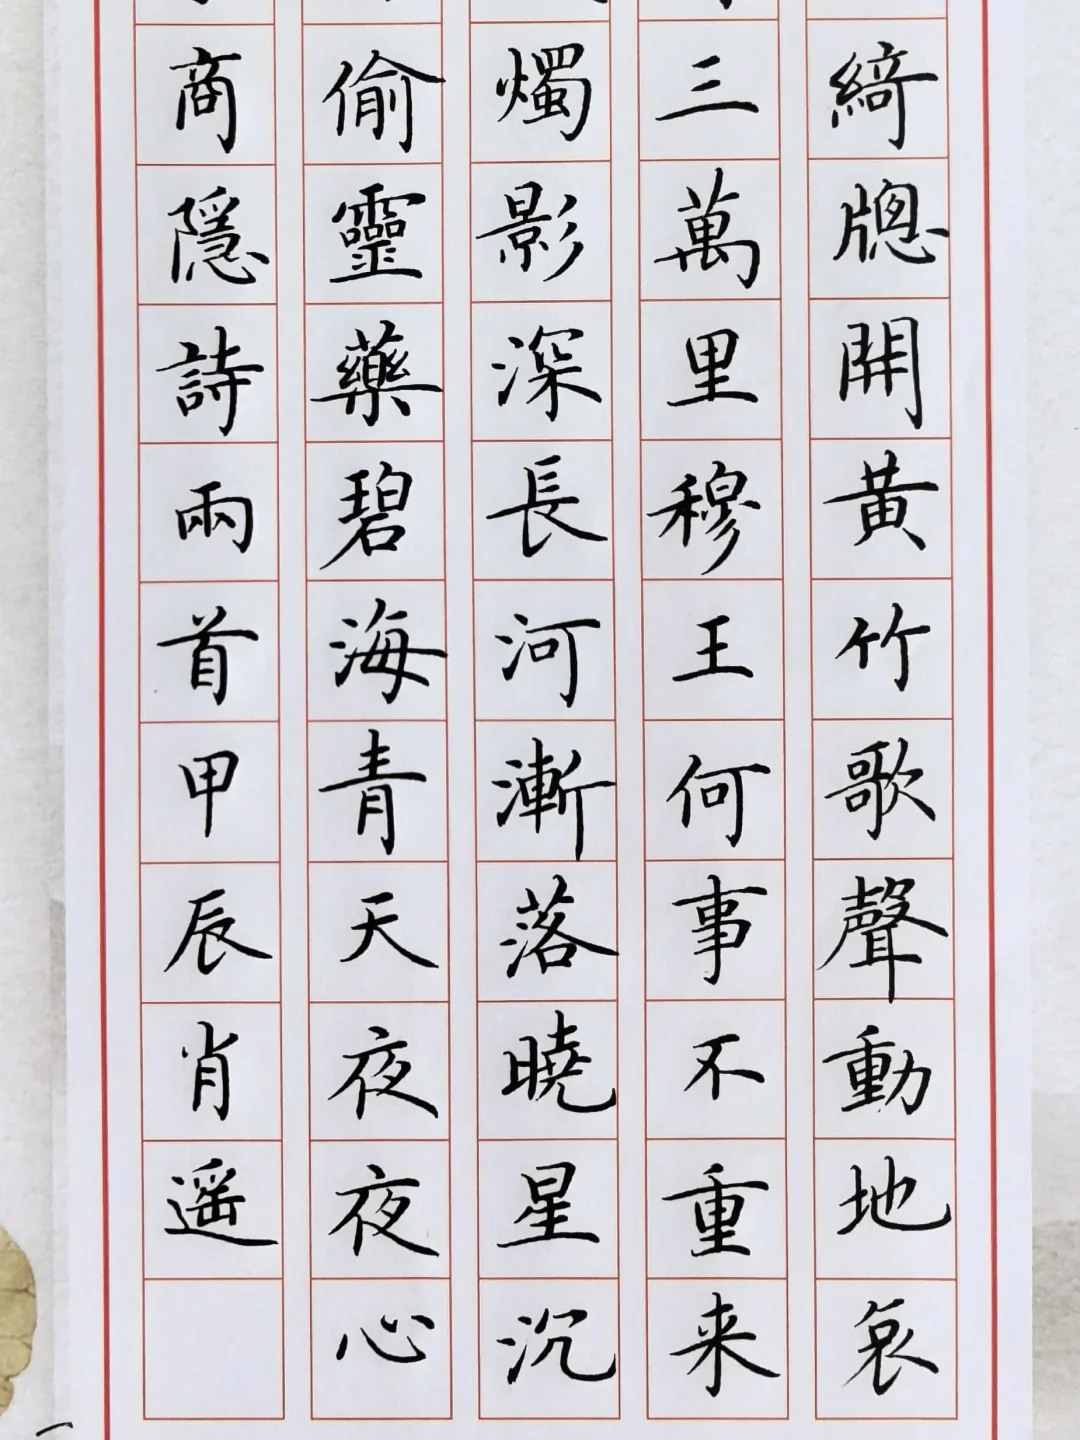 綺牕開黃竹歌聲動地哀
三萬里穆王何事不重来
燭影深長河漸落曉星沉
偷靈藥碧海青天夜夜心
商隱詩兩首甲辰肖遥